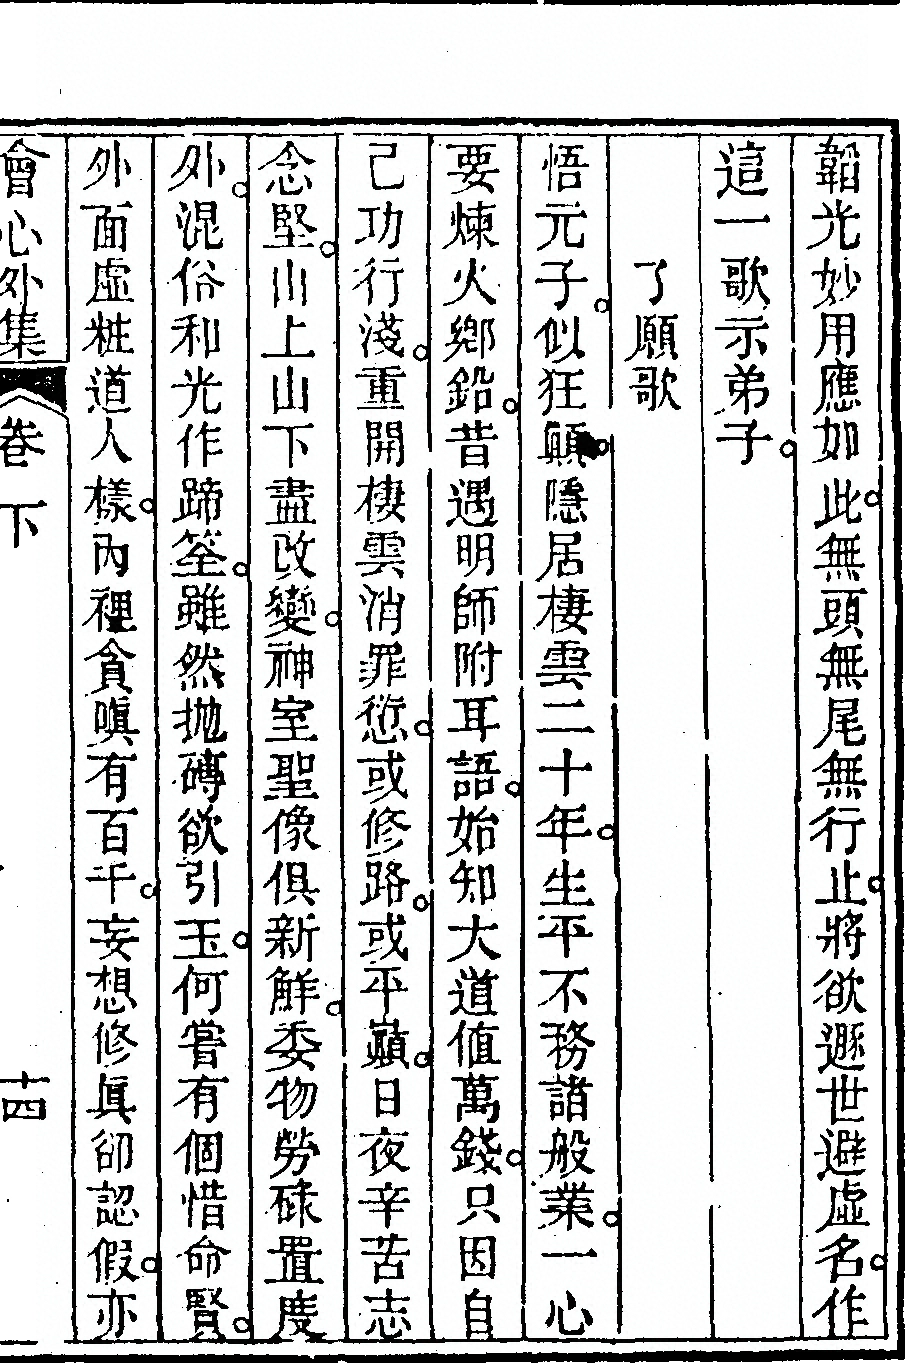 韜光妙用應如此。無頭無尾無行止。將欲遯世避虛名。作
這一歌示弟子。
了願歌
悟元子。似狂顚。隱居棲雲二十年。生平不務諸般業。一心
要煉火鄉鉛。昔遇明師附耳語。始知大道值萬錢。只因自
己功行淺。重開棲雲消罪愆。或修路。或平巓。日夜辛苦志
念堅。山上山下盡改變。神室聖像俱新鮮。委物勞碌置度
外。混俗和光作蹄筌。雖然拋磚欲引玉。何嘗有個惜命賢。
外面虛粧道人樣。內裡貪嗔有百千。妄想修眞卻認假。亦
會心外集 卷下 十四